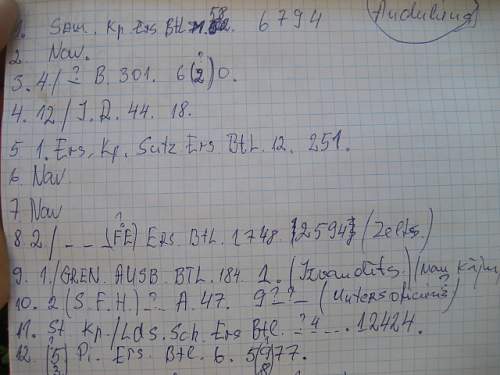 Andulins
1. Sam. Kp Ers Btl 58. 6794
2. Nav.
3. 4/ ? B. 301. 6(2)0.
4. 12/ J. R. 44. 18.
5 1. Ers, Kp. Sutz Ers Btl. 12. 251.
6 Nav
7 Nav
8. 2/ _ _ _ (FE) Ers. Btl. 1748. (Zelts.)
9. 1./GREN. AUSB. BTL. 184. 2. (Nav
10. 2 (S.F.H) _?_ A. 47. 9 ? ? _
11. St. Kp./Lds. Sch. Ers Btl. _?4_.. 12424.
12. (5) Pi. Ers. Btl. 6. 5(9)77.